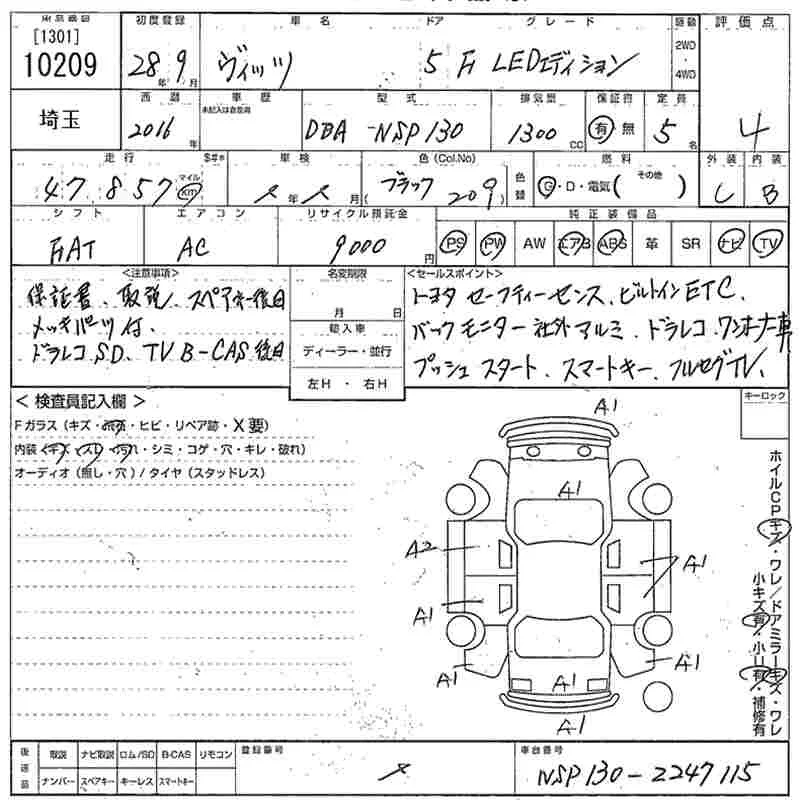 [1301]
10209
初度登録
28年9月
車名
ヴィッツ
ドア
5
グレード
F LEDエディション
2WD
・
4WD
評価点
4
埼玉
西暦
2016年
車歴
未記入は自家用
型式
DBA-NSP130
排気量
1300CC
保証書
有 無
定員
5名
走行
47,857
マイル
Km
車検
年 月
色(Col.No)
ブラック 209
色替
燃料
G・D・電気( その他 )
外装
C
内装
B
シフト
FAT
エアコン
AC
リサイクル預託金
9000円
純正装備品
PS PW AW エアB ABS 革 SR ナビ TV
<注意事項>
保証書、取説、スペアキー後日
メッキパーツ付、
ドラレコSD、TV B-CAS後日
名変期限
月 日
輸入車
ディーラー・並行
左H ・ 右H
<セールスポイント>
トヨタセーフティーセンス、ビルトインETC、
バックモニター 社外アルミ、ドラレコ、ワンオーナー車
プッシュスタート、スマートキー、フルセグTV、
キーロック
<検査員記入欄>
Fガラス(キズ・飛石・ヒビ・リペア跡・X要)
内装(キズ・スレ・汚れ・シミ・コゲ・穴・キレ・破れ)
オーディオ(無し・穴)/タイヤ(スタッドレス)
A1
A1
A2
A1
A1
A1
A1
A1
A1
ホイルCPキズ・ワレ/ドアミラーキズ・ワレ
小キズ有/小U有・補修有
後送品
取説 ナビ取説 ロム/SD B-CAS リモコン
ナンバー スペアキー キーレス スマートキー
登録番号
車台番号
NSP130-2247115